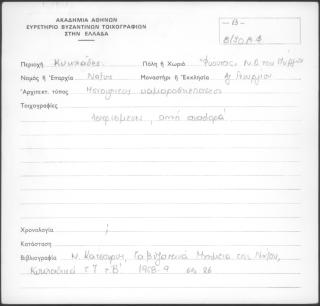 ΑΚΑΔΗΜΙΑ ΑΘΗΝΩΝ
ΕΥΡΕΤΗΡΙΟ ΒΥΖΑΝΤΙΝΩΝ ΤΟΙΧΟΓΡΑΦΙΩΝ
ΣΤΗΝ ΕΛΛΑΔΑ
- Β -
Περιοχή Κυκλάδες Πόλη ή Χωριό Ν.Δ. του
Νομός ή Επαρχία Νάξος Μοναστήρι ή Εκκλησία Αγ. Γεώργιος
Αρχιτεκτ. τύπος Μονόχωρος καμαροσκέπαστος
Τοιχογραφίες
απλή αναφορά
Χρονολογία
Κατάσταση
Βιβλιογραφία Ν. Τα Βυζαντινά Μνημεία της Νάξου,
Κυκλαδικά τ. Τ. Β' 1958-9 σελ 26